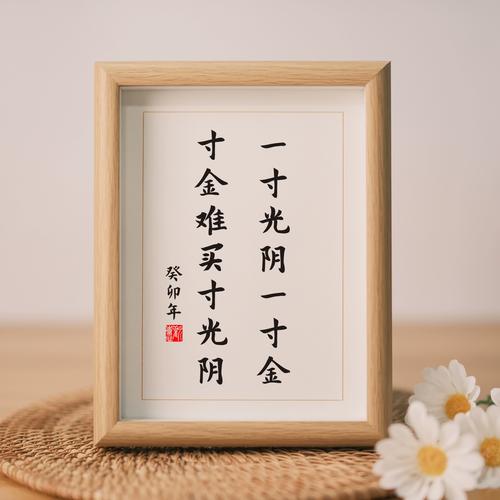 一寸光阴一寸金
寸金难买寸光阴
癸卯年